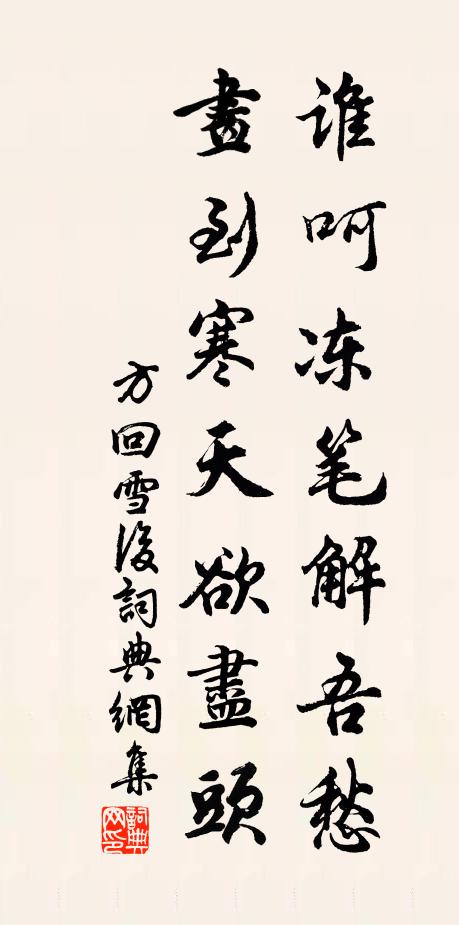 谁呵冻笔解吾愁
畫到寒天欲盡頭
方回雪後詞典網集
詞典網印